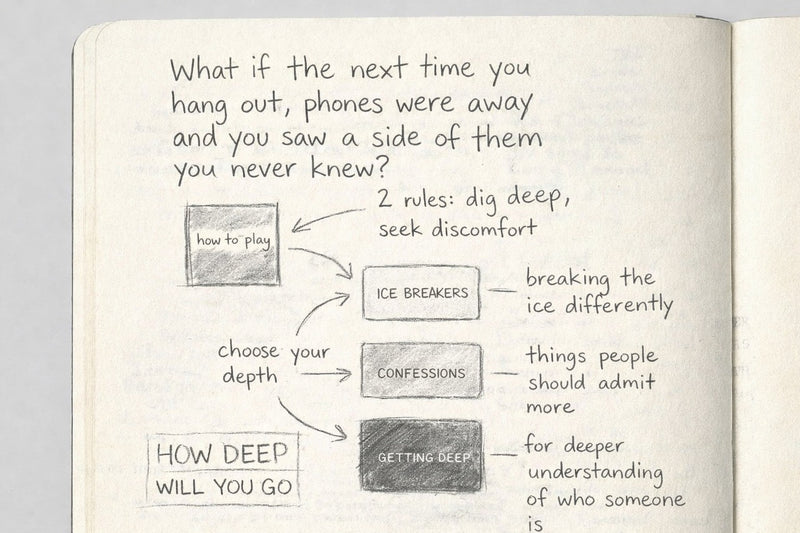 What if the next time you
hang out, phones were away
and you saw a side of them
you never knew?
2 rules: dig deep,
seek discomfort
how to play
ICE BREAKERS
breaking the
ice differently
choose your
depth
CONFESSIONS
things people
should admit
more
GETTING DEEP
for deeper
understanding
of who someone
is
HOW DEEP
WILL YOU GO